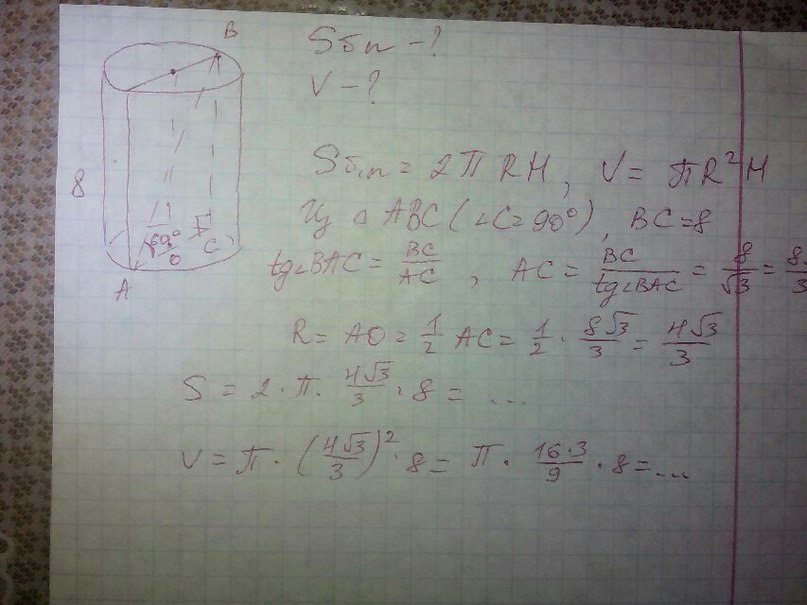 B
Sбп - ?
V - ?
8
60°
O
C
A
Sбп = 2πRH, V = πR²H
Из △ABC (∠C = 90°), BC = 8
tg∠BAC = BC/AC, AC = BC/tg∠BAC = 8/√3 = 8·3
R = AO = 1/2 AC = 1/2 · 8√3/3 = 4√3/3
S = 2 · π · 4√3/3 · 8 = ...
V = π · (4√3/3)² · 8 = π · 16·3/9 · 8 = ...